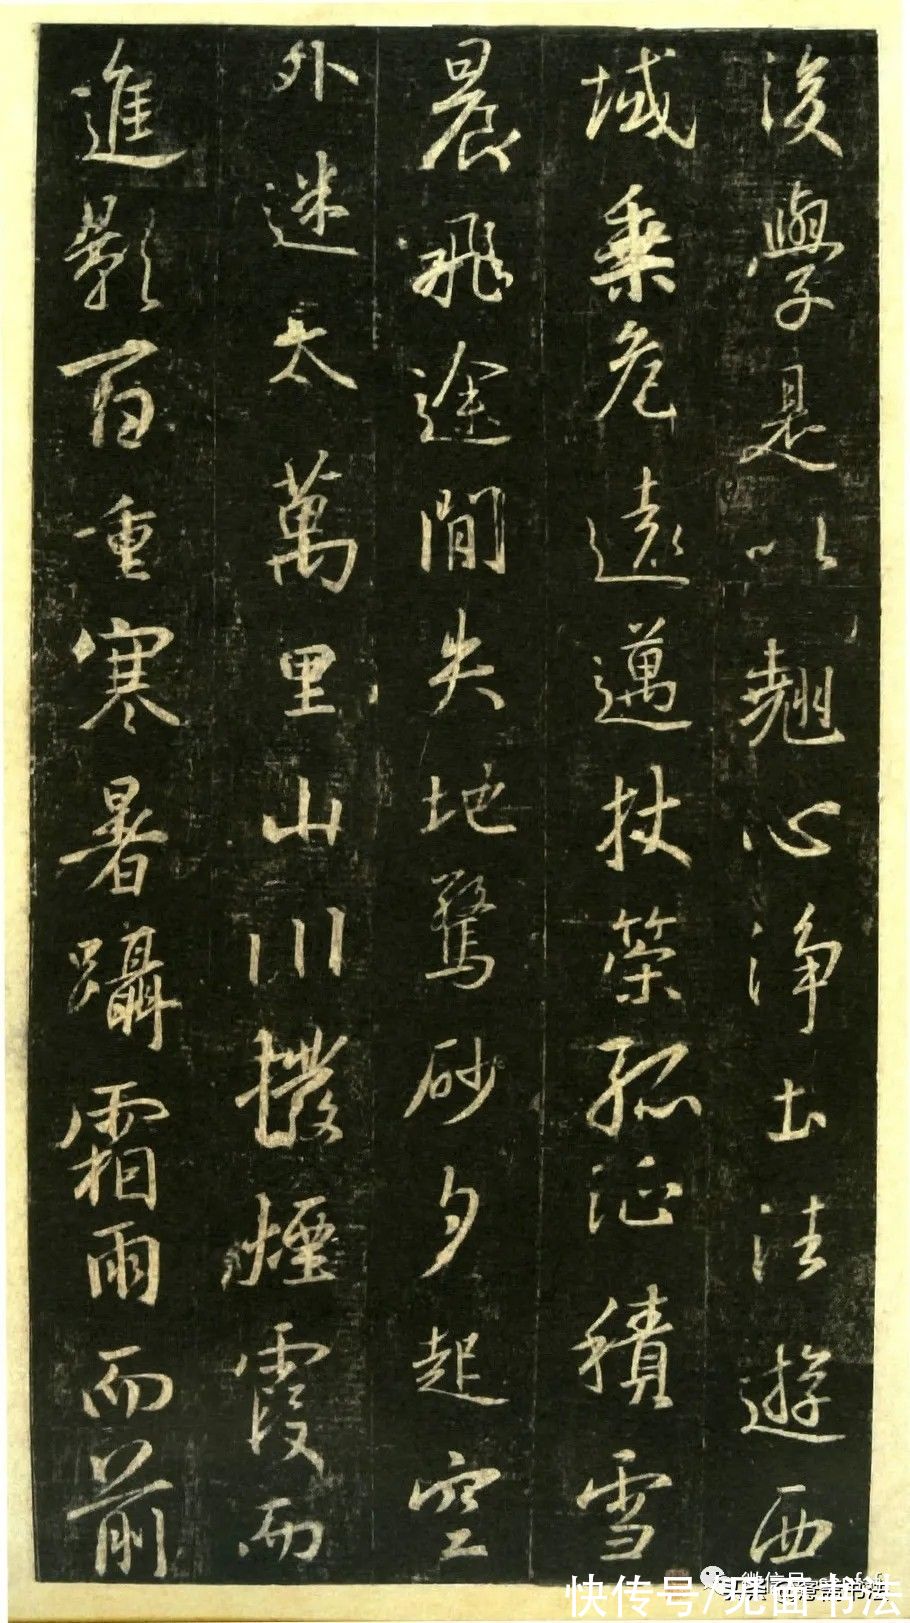 後學是以翹心淨土往遊西
域乘危遠邁杖策孤征積雪
晨飛途間失地驚砂夕起空
外迷天萬里山川撥煙霞而
進影百重寒暑躡霜雨而前
快传号/见面书法